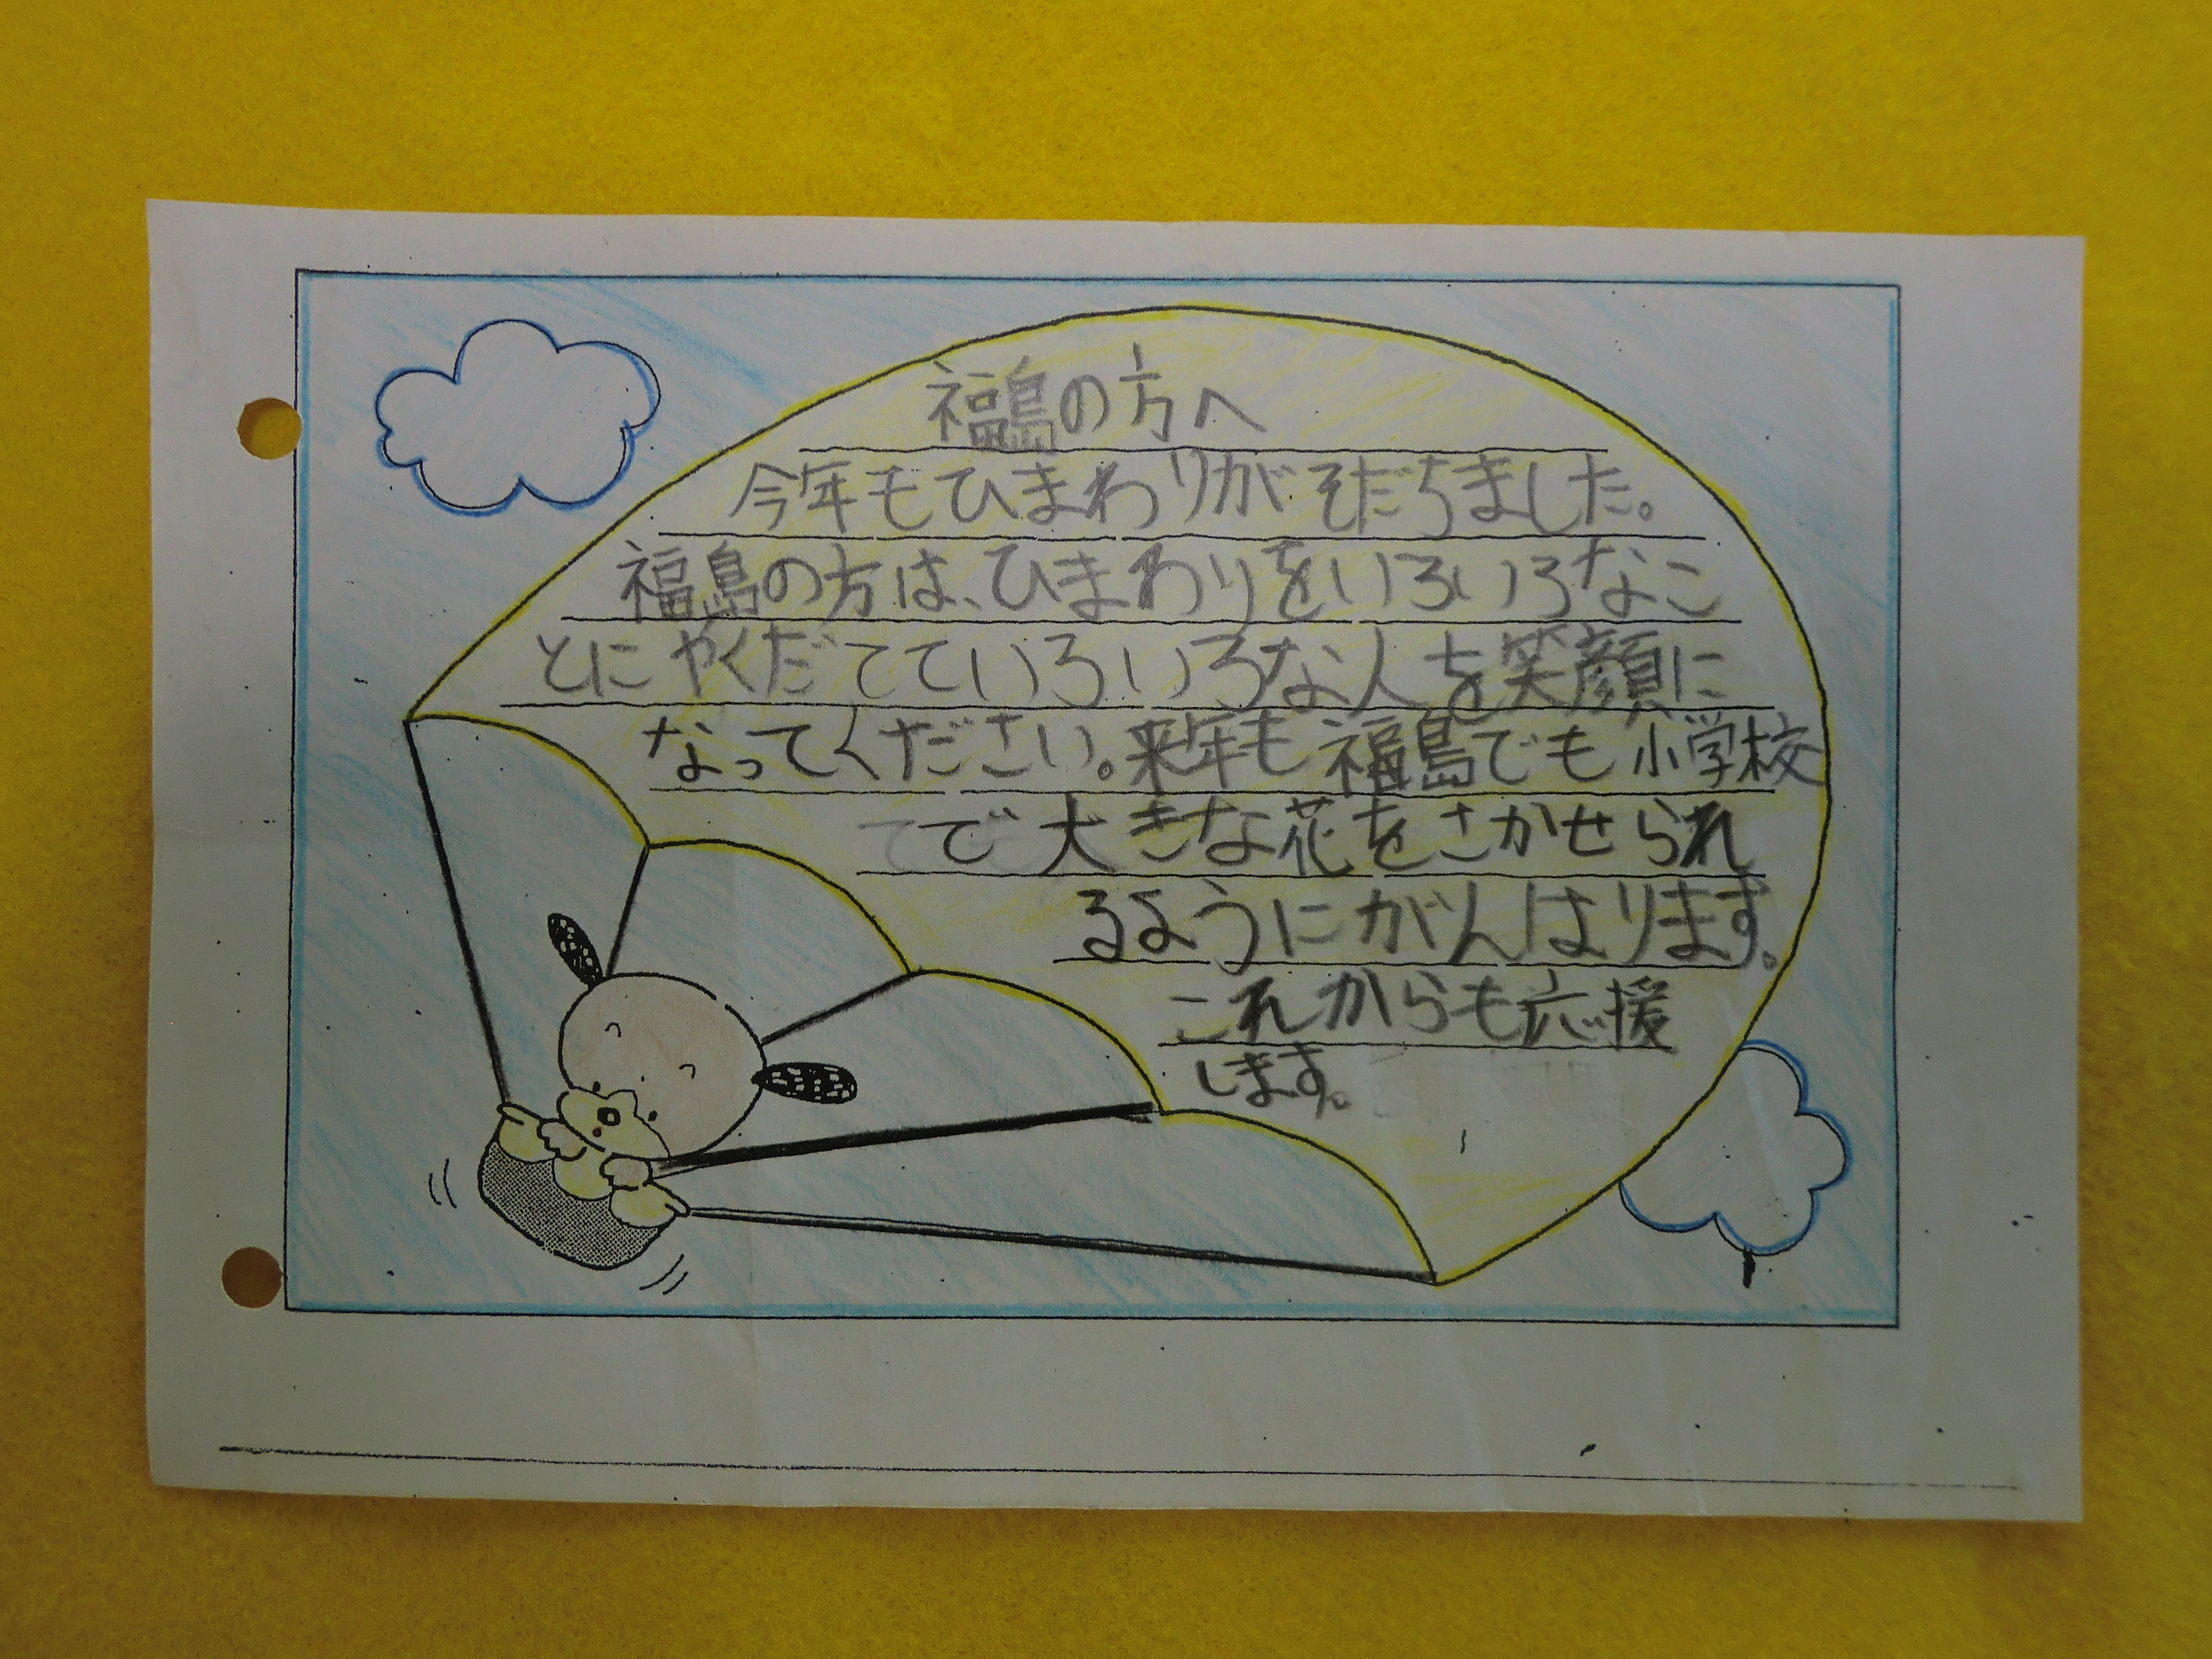 福島の方へ
今年もひまわりがそだちました。
福島の方は、ひまわりをいろいろなこ
とにやくだてていろいろな人を笑顔に
なってください。来年も福島でも小学校
で大きな花をさかせられ
るようにがんはります。
これからも応援
します。